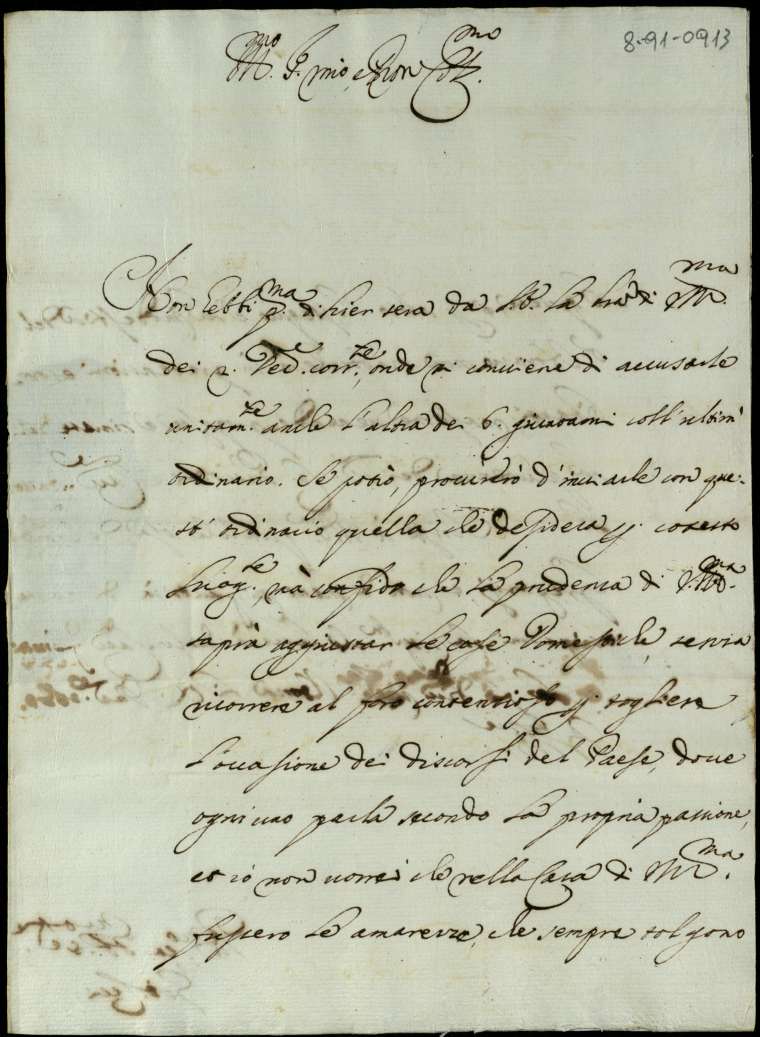 8-91-0913
Ill.mo S.r mio, e Pron Col.mo
Non hebbi p.ma di hier sera da la l'ra di V.S. Ill.ma
dei 2. corr.te, onde mi conviene di accusarle
unitam.te anche l'altra dei 6. giuntami coll'ultim'
ordinario. Se potrò, procurerò d'inviarle con que-
st'ordinario quella che desidera p. cotesto
mà confido che la prudenza di V.S. Ill.ma
saprà aggiustar le cose Domestiche, senza
ricorrere al foro contentioso p. togliere
l'occasione dei discorsi del Paese, dove
ogni uno parla secondo la propria passione,
et io non vorrei che nella Casa di V.S. Ill.ma
fussero le amarezze, che sempre tolgono